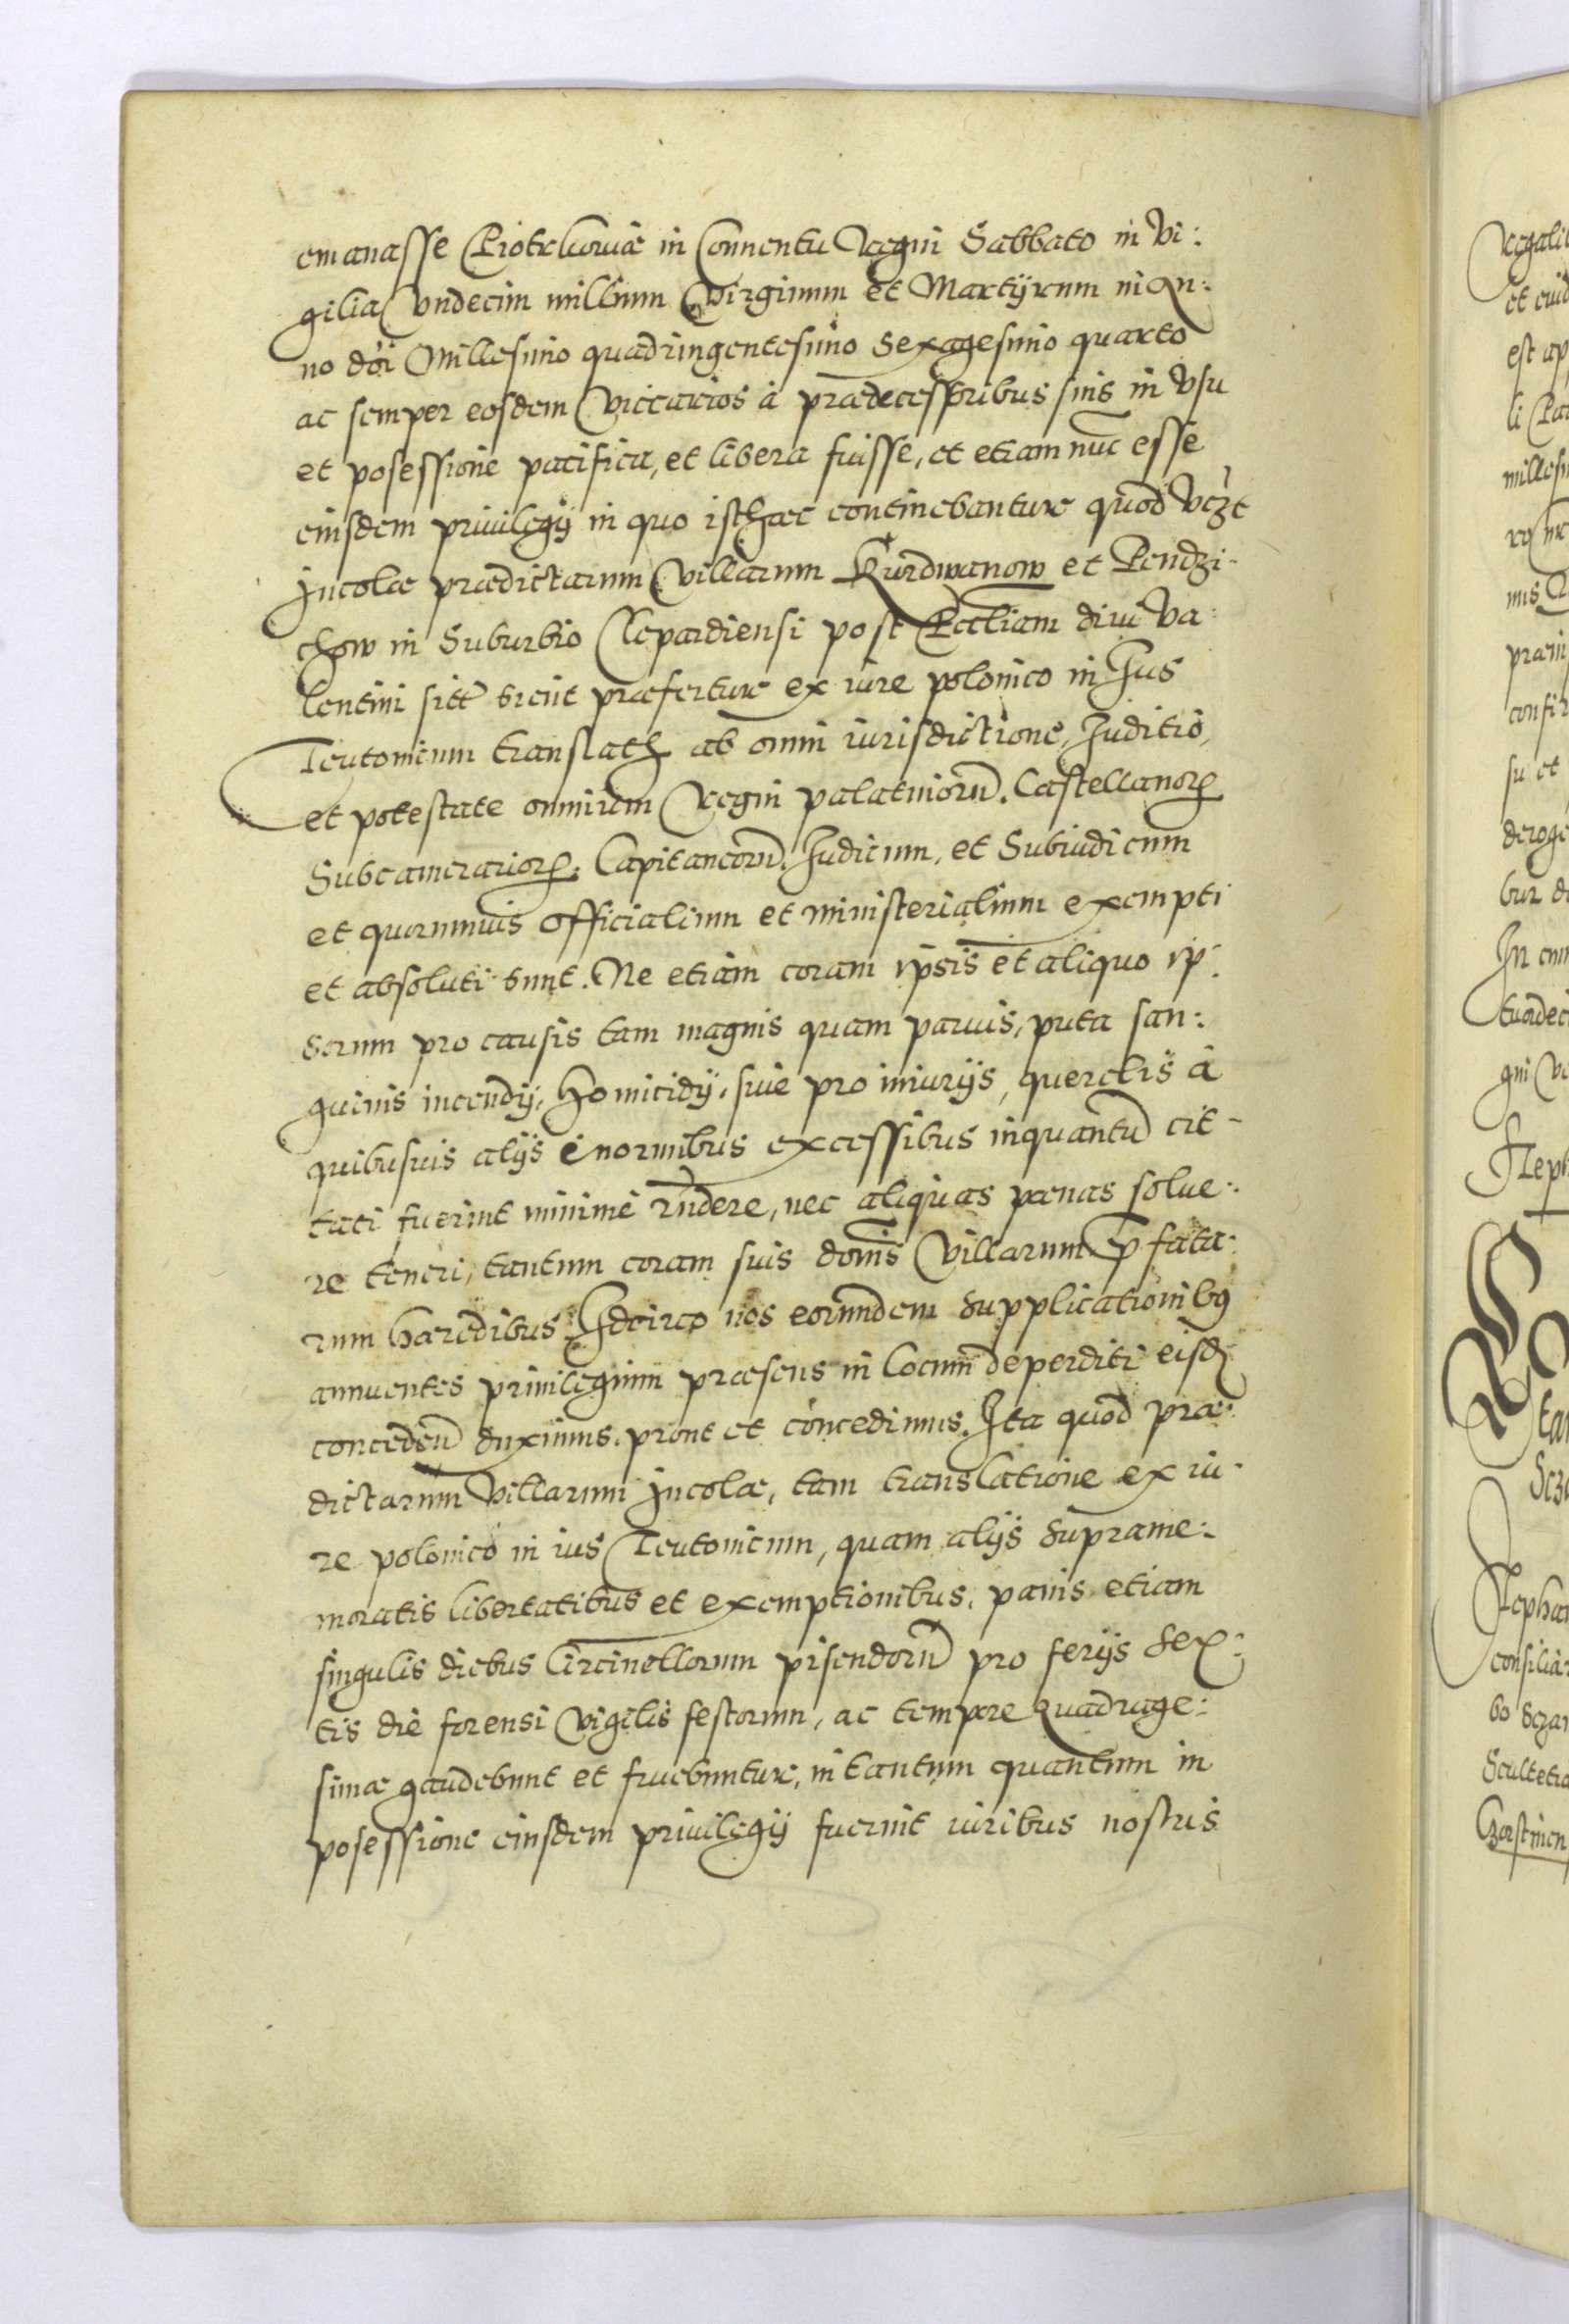 emanasse Piotrkoviæ in Conuentu Regni Sabbato in Vi:
gilia Vndecim millium Virginum et Martÿrum in An:
no dn̄i Millesimo quadringentesimo Sexagesimo quarto
ac semper eosdem Viccarios à prædecessoribus suis in Vsu
et posessione pacifica, et libera fuisse, et etiam nūc esse
eiusdem priuilegÿ in quo isthæc continebantur quod Vczt
Incolæ prædictarum Villarum Kurdwanow et Pendzi-
chow in Suburbio Clepardiensi post Eccliam diui Va:
lentini sitt̃ sicut præfertur ex iure polonico in Jus
Teutonicum translatꝝ ab omni iurisdictione, Juditio,
et potestate omnium Regni palatinorū. Castellanorꝝ
Subcamerariorꝝ. Capitaneorū. Judicum, et Subiudicum
et quorumuis officialium et ministerialium exempti
et absoluti sunt. Ne etiam coram ipsis et aliquo ip:
sorum pro causis tam magnis quam paruis, puta san:.
guinis incendÿ, Homicidÿ, siue pro iniurÿs, querelis à
quibusuis alÿs enormibus excessibus inquantū cit-
tati fuerint minimè rn̄dere, nec aliquas pœnas solue:.
re teneri, tantum coram suis domīs Villarum p̄fata:
rum hæredibus Idcirco nos eorundem supplicationibꝰ
annuentes priuilegium præsens in Locum deperditi eisdꝫ
concedenū duximus. prout et concedimus. Ita quod præ:
dictarum Villarum Incolæ, tam translatione ex iu-
re polonico in ius Teutonicum, quam alÿs suprame:.
moratis libertatibus et exemptionibus, panis etiam
singulis diebus Circinellorum pisendorū pro ferÿs sex:
tis die forensi Vigilis festorum, ac tempore quadrage:
simæ gaudebunt et fruebuntur, in tantum quantum in
posessione eiusdem priuilegÿ fuerint iuribus nostris